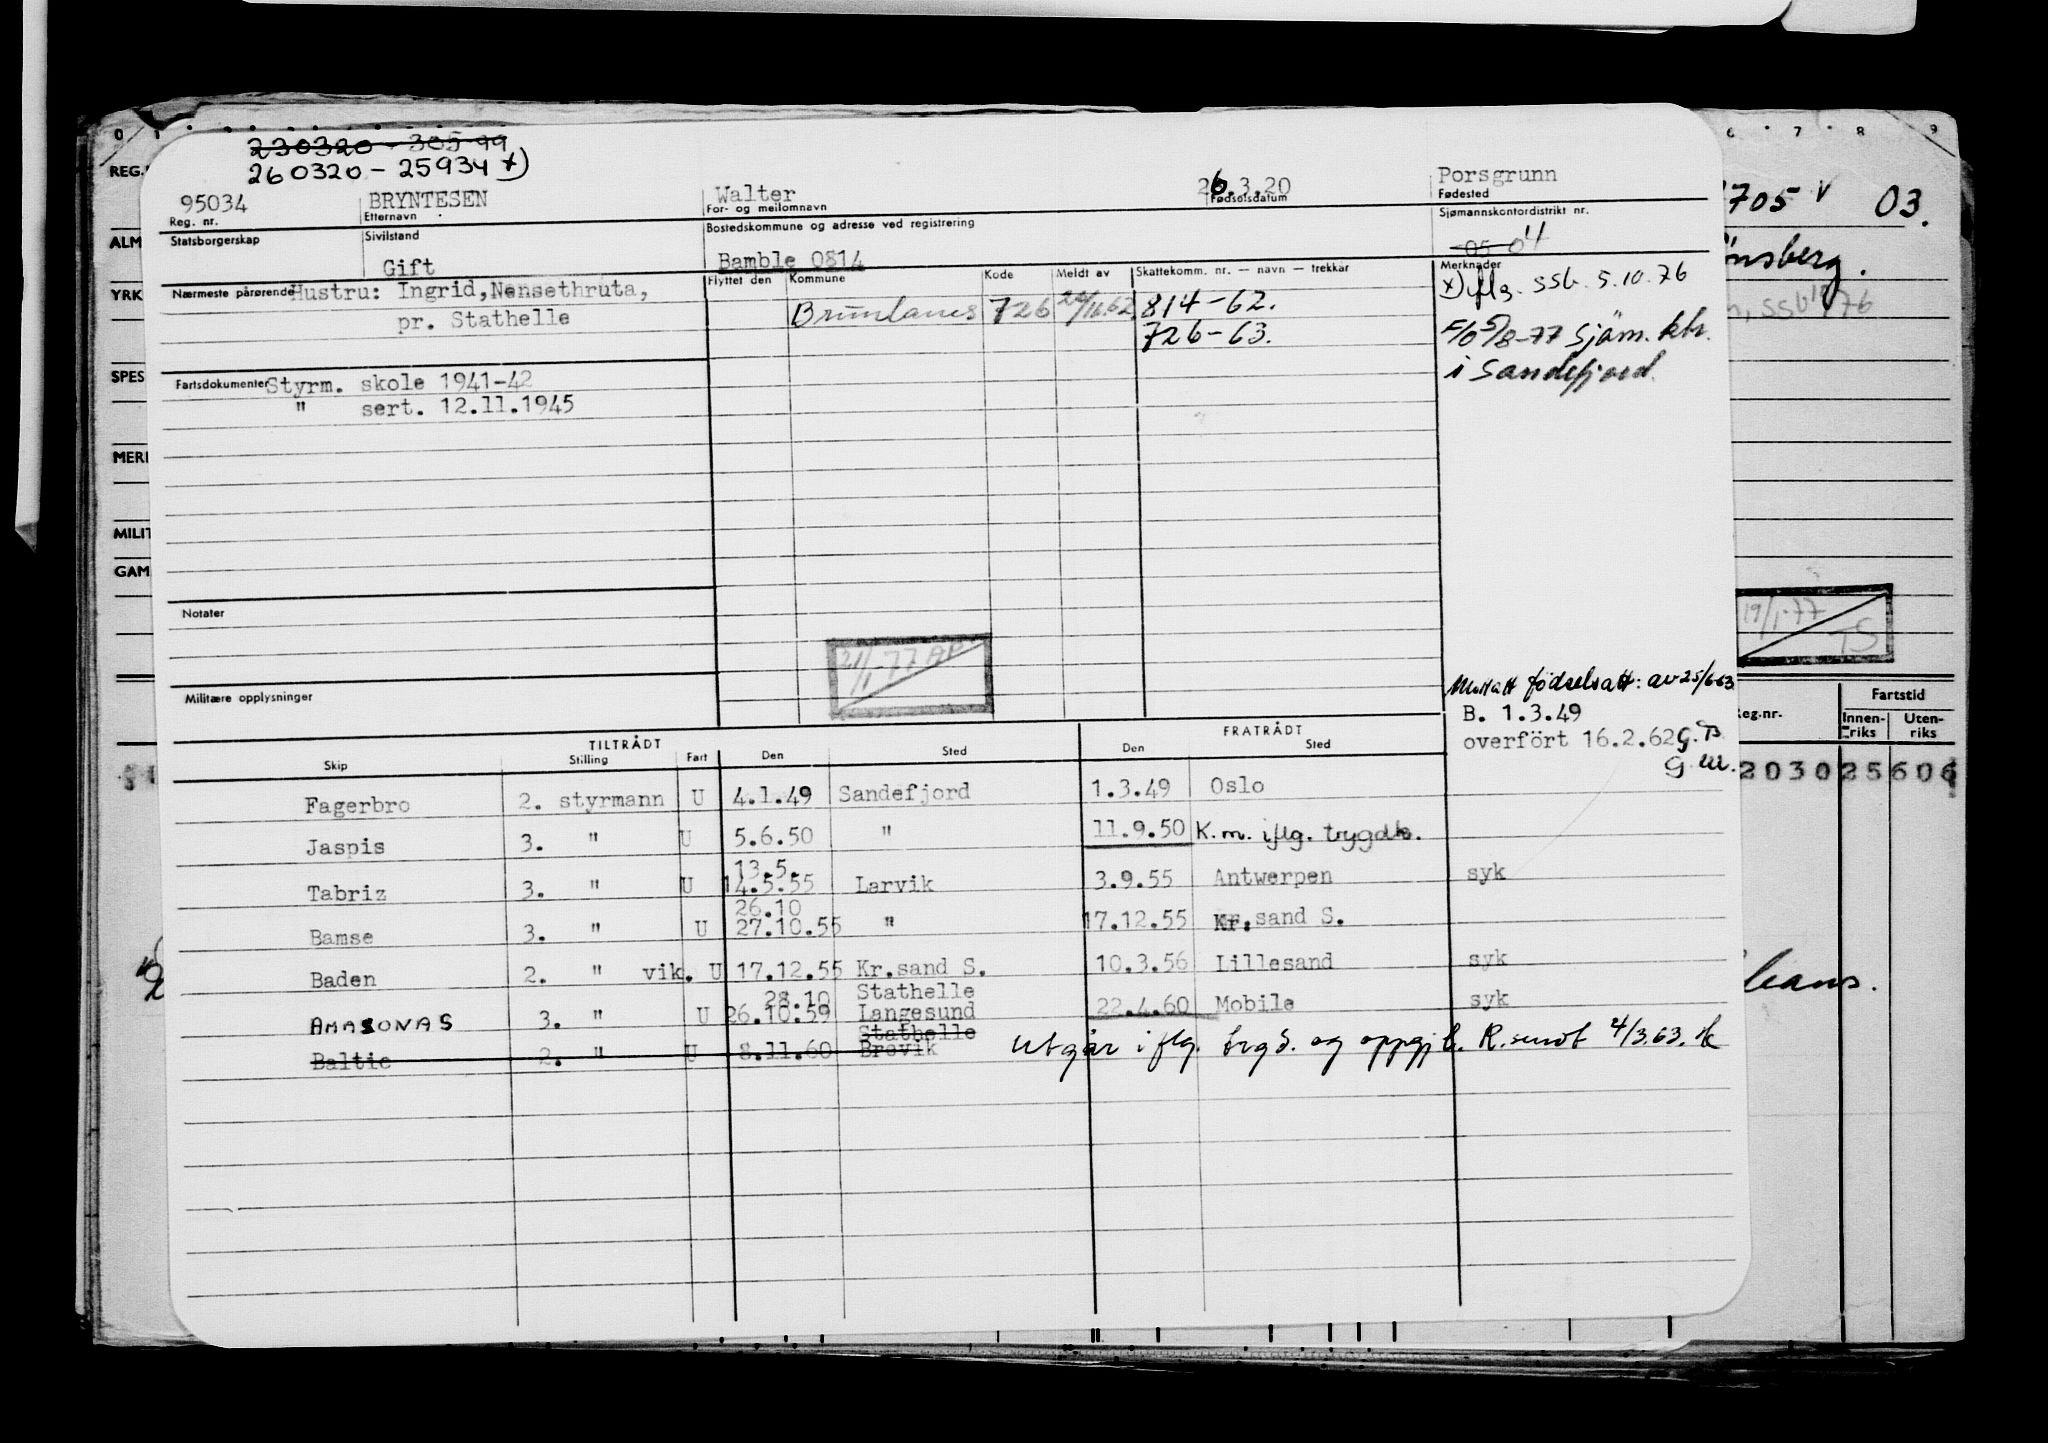 230320 - 30599
260320 - 25934 x)
95034 BRYNTESEN Walter 26.3.20 Porsgrunn
Reg. nr. Etternavn For- og mellomnavn Fødselsdatum Fødested
Statsborgerskap Sivilstand Bostedskommune og adresse ved registrering Sjømannskontordistrikt nr.
Gift Bamble 0814 05 04
Nærmeste pårørende Flyttet den Kommune Kode Meldt av Skattekomm. nr. — navn — trekkår Merknader
Hustru: Ingrid, Nensethruta, Brunlanes 726 814-62. x) iflg. SSb. 5.10.76
pr. Stathelle 726-63. F/o 5/8-77 Sjøm. ktr.
i Sandefjord.
Fartsdokumenter Styrm. skole 1941-42
" sert. 12.11.1945
Notater
21/1-77 AP
Militære opplysninger
Mottatt fødselsatt: av 25/6-63
B. 1.3.49
overført 16.2.62 G.B.
G.M.
TILTRÅDT FRATRÅDT
Skip Stilling Fart Den Sted Den Sted
Fagerbro 2. styrmann U 4.1.49 Sandefjord 1.3.49 Oslo
Jaspis 3. " U 5.6.50 " 11.9.50 K.m. iflg. trygdk.
13.5.
Tabriz 3. " U 14.5.55 Larvik 3.9.55 Antwerpen syk
26.10
Bamse 3. " U 27.10.55 " 17.12.55 Kr.sand S.
Baden 2. " vik. U 17.12.55 Kr.sand S. 10.3.56 Lillesand syk
28.10 Stathelle
AMASONAS 3. " U 26.10.59 Langesund 22.4.60 Mobile syk
Stathelle
Baltic 2. " U 8.11.60 Brevik Utgår iflg. trgd. og oppgj. 4/3.63.
0 1 6 7 8 9
REG.
705 V 03.
ALM
ønsberg.
YRK
SSb 76
SPES
MERK
MILIT
GAM
19/1-77
TS
Reg.nr. Fartstid
Innen-riks Uten-riks
2030 25606
leans.